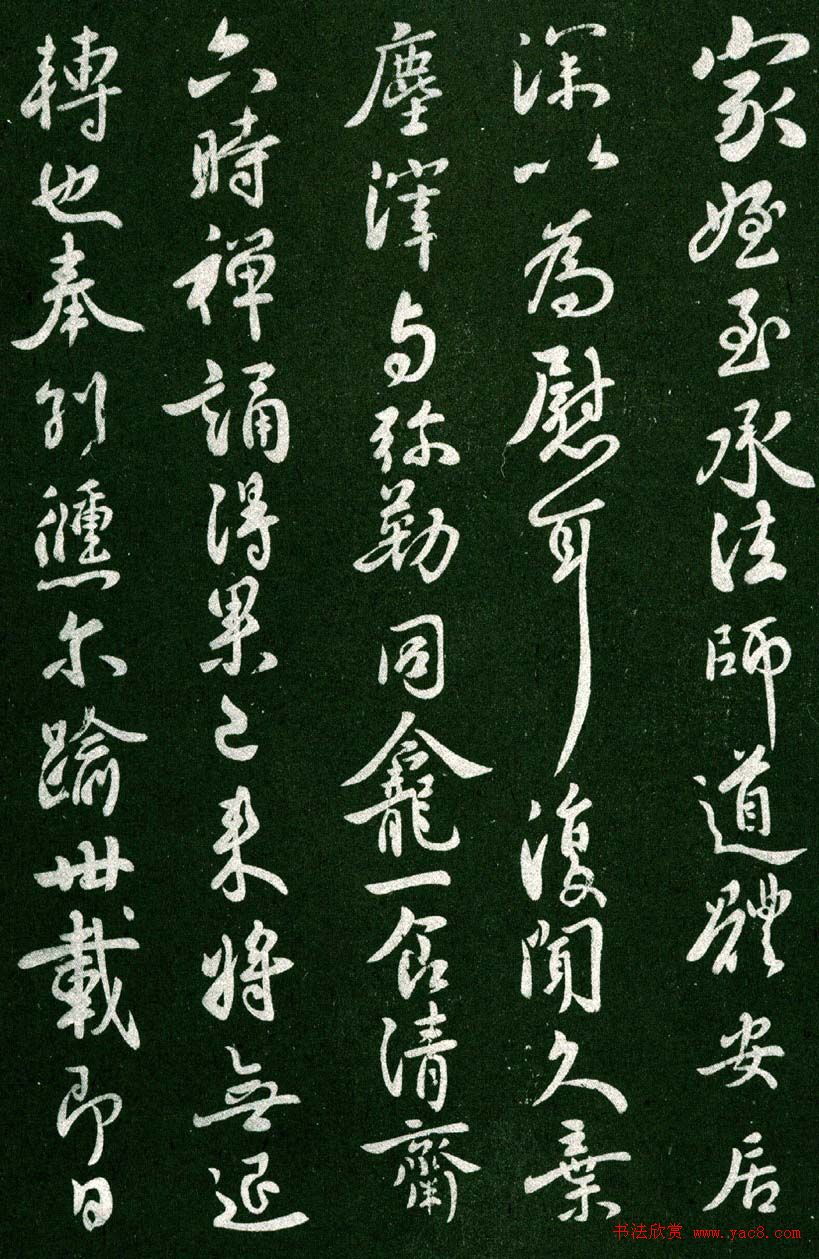 家姪至承法師道體安居
深以為慰耳復聞久棄
塵滓与弥勒同龕一食清齋
六時禪誦得果已来将無退
轉也奉別儵尓踰卅載即日
书法欣赏 www.yac8.com